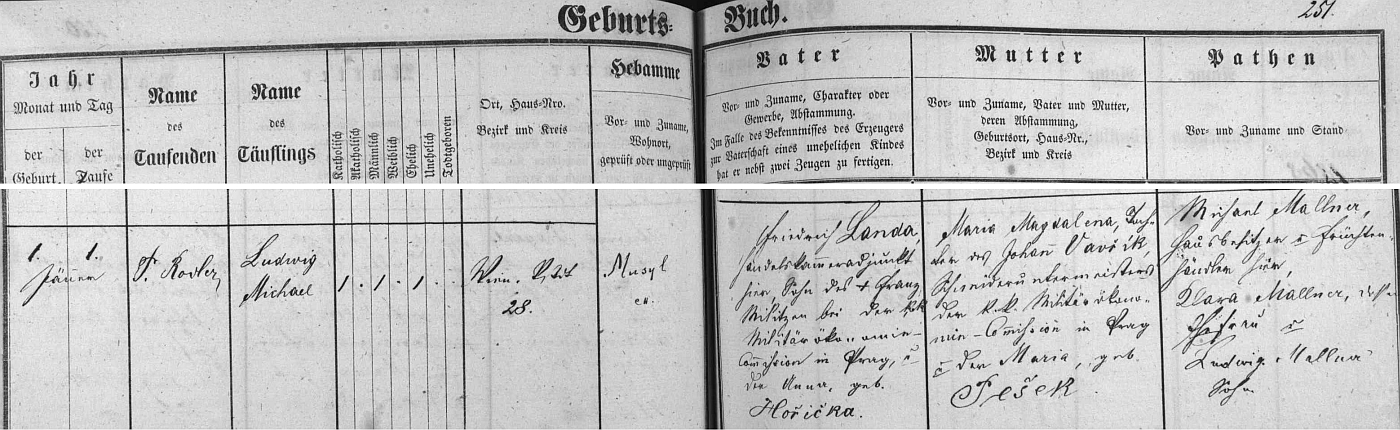 Geburts-Buch.
251.
Jahr
Monat und Tag
der Geburt.
der Taufe
Name
des
Taufenden
Name
des
Täuflings
Katholisch
Akatholisch
Männlich
Weiblich
Ehelich
Unehelich
Todtgeboren
Ort, Haus-Nro.
Bezirk und Kreis
Hebamme
Vor- und Zuname,
Wohnort,
geprüft oder ungeprüft
Vater
Vor- und Zuname, Charakter oder
Gewerbe, Abstammung.
Im Falle des Bekenntnisses des Erzeugers
zur Vaterschaft eines unehelichen Kindes
hat er nebst zwei Zeugen zu fertigen.
Mutter
Vor- und Zuname, Vater und Mutter,
deren Abstammung,
Geburtsort, Haus-Nr.,
Bezirk und Kreis
Pathen
Vor- und Zuname und Stand
1. 1.
Jänner
Ludwig
Michael
1 . 1 . 1 . .
28.
Friedrich Landa,
Handelskammeradjunkt
hier, Sohn des + Franz
bei der k.k.
Militärökonomie-
Commission in Prag, u
der Anna, geb.
Hořička.
Maria Magdalena, Toch-
ter des Johann Vavřík,
Schneiderwerkmeisters
der k.k. Militärökono-
mie-Commission in Prag
u der Maria, geb.
Pešek
Michael Mallner,
Hausbesitzer u Früchten-
händler hier,
Klara Mallner, dessen
Ehefrau u
Ludwig Mallner
Sohn